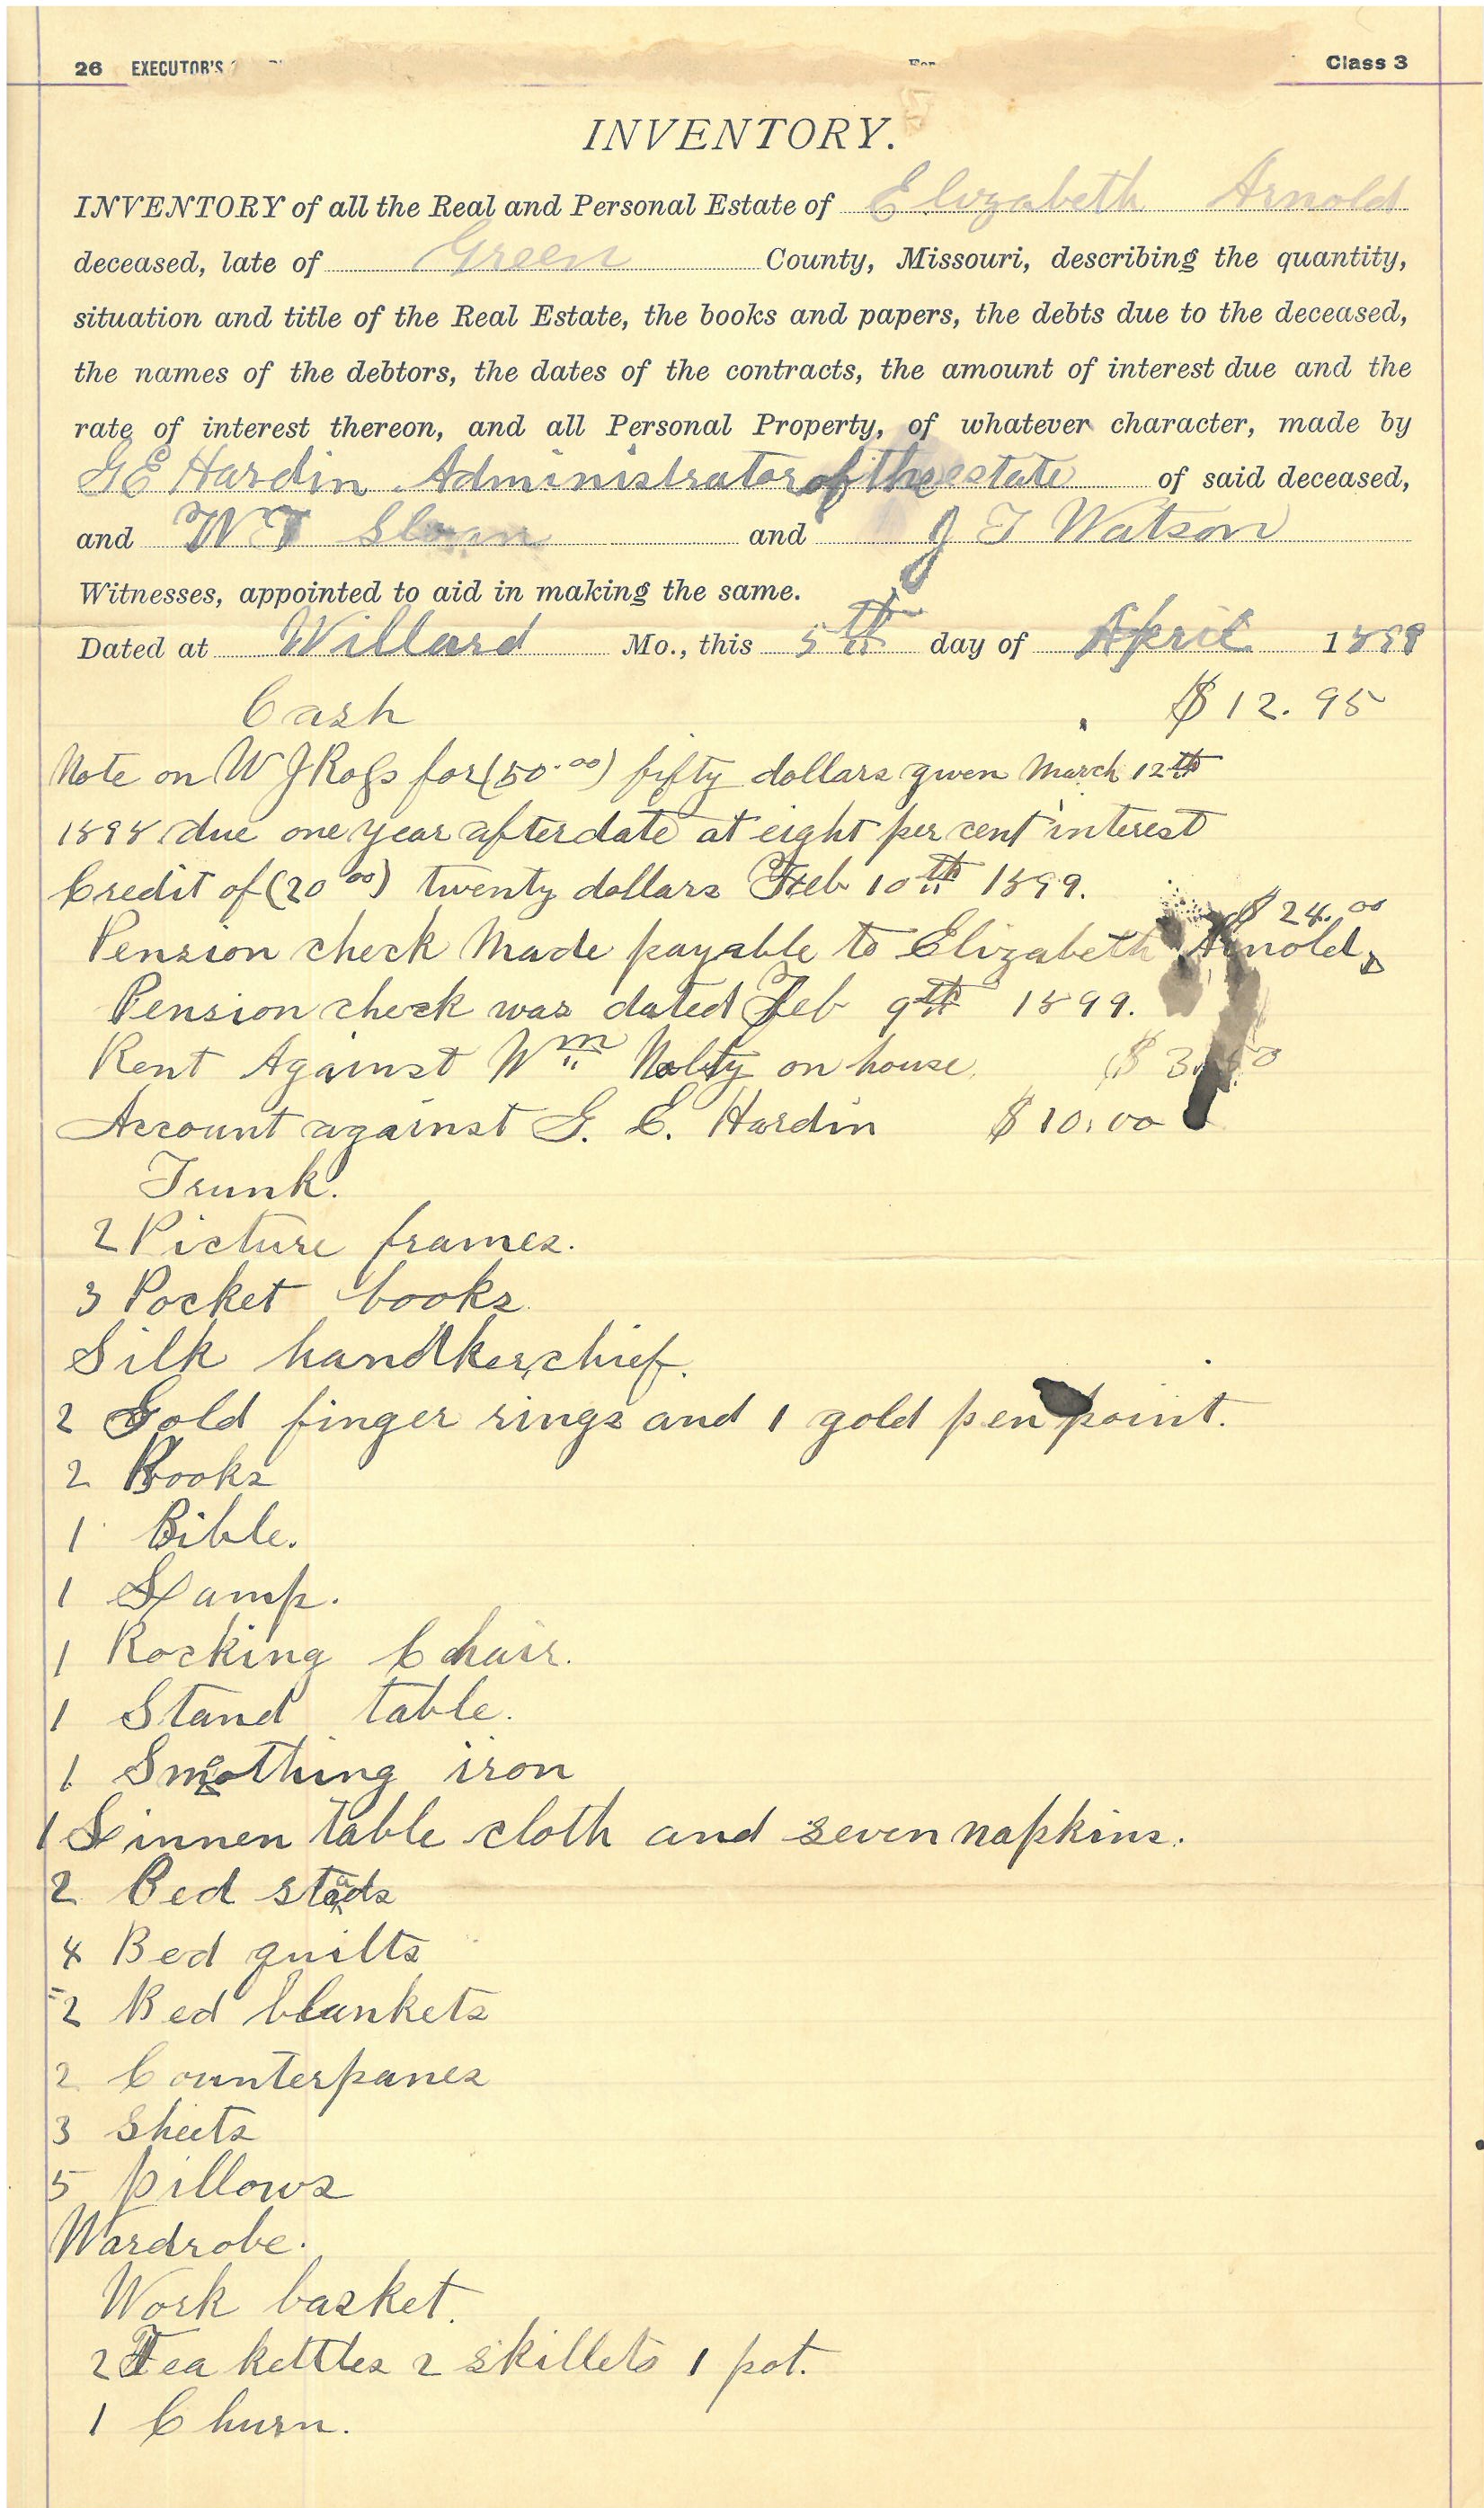 26 EXECUTOR'S
Class 3
INVENTORY.
INVENTORY of all the Real and Personal Estate of Elizabeth Arnold
deceased, late of Green County, Missouri, describing the quantity,
situation and title of the Real Estate, the books and papers, the debts due to the deceased,
the names of the debtors, the dates of the contracts, the amount of interest due and the
rate of interest thereon, and all Personal Property, of whatever character, made by
G E Hardin Administrator of the estate of said deceased,
and W T Sloan and J T Watson
Witnesses, appointed to aid in making the same.
Dated at Willard Mo., this 5th day of April 1899
Cash $12.95
Note on W J Ross for (50.00) fifty dollars given March 12th
1898 due one year after date at eight per cent interest
Credit of (20 00) twenty dollars Feb 10th 1899.
$24.00
Pension check Made payable to Elizabeth Arnold
Pension check was dated Feb 9th 1899.
Rent Against Wm on house
Account against G. E. Hardin $10.00
Trunk.
2 Picture frames.
3 Pocket books.
Silk handkerchief.
2 Gold finger rings and 1 gold pen point.
2 Books
1 Bible.
1 Lamp.
1 Rocking Chair.
1 Stand table.
1 Smoothing iron
1 Linnen table cloth and seven napkins.
2 Bed steads
4 Bed quilts
2 Bed blankets
2 Counterpanes
3 Sheets
5 pillows
Wardrobe.
Work basket.
2 Tea kettles 2 skillets 1 pot.
1 Churn.